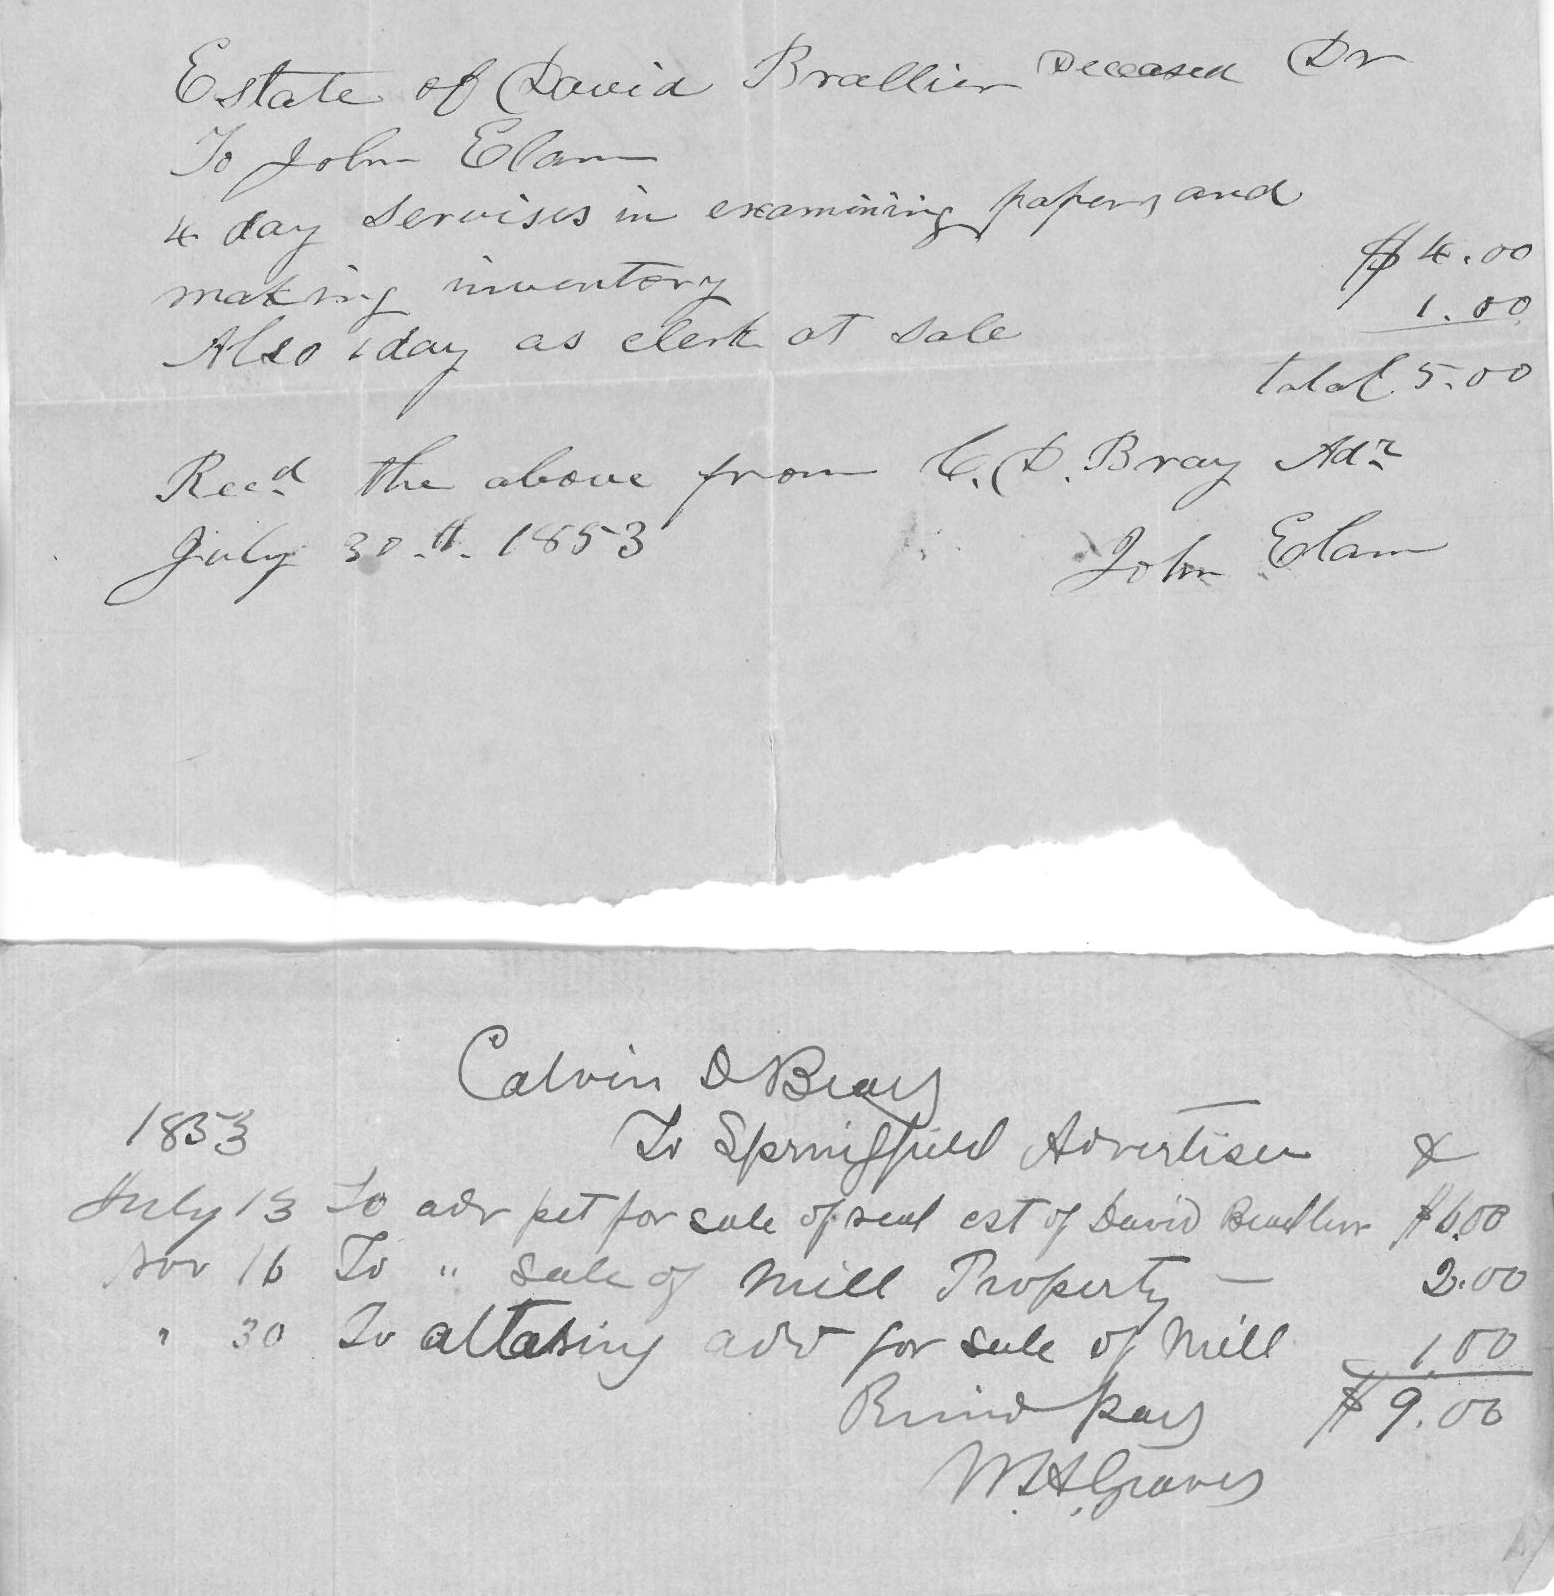 Estate of David Brallier Deceased Dr
To John Elam
4 day servises in examining papers and
making inventory $4.00
Also 1 day as clerk at sale 1.00
total 5.00
Recd the above from C. D. Bray Adr
July 30th 1853
John Elam
Calvin D Bray
1853 To Springfield Advertiser
July 13 To adv pet for sale of real est of David Brallier $6.00
Nov 16 To " sale of Mill Property — 2.00
" 30 To altaring adv for sale of Mill 1.00
pay $9.00
W. H. Graves